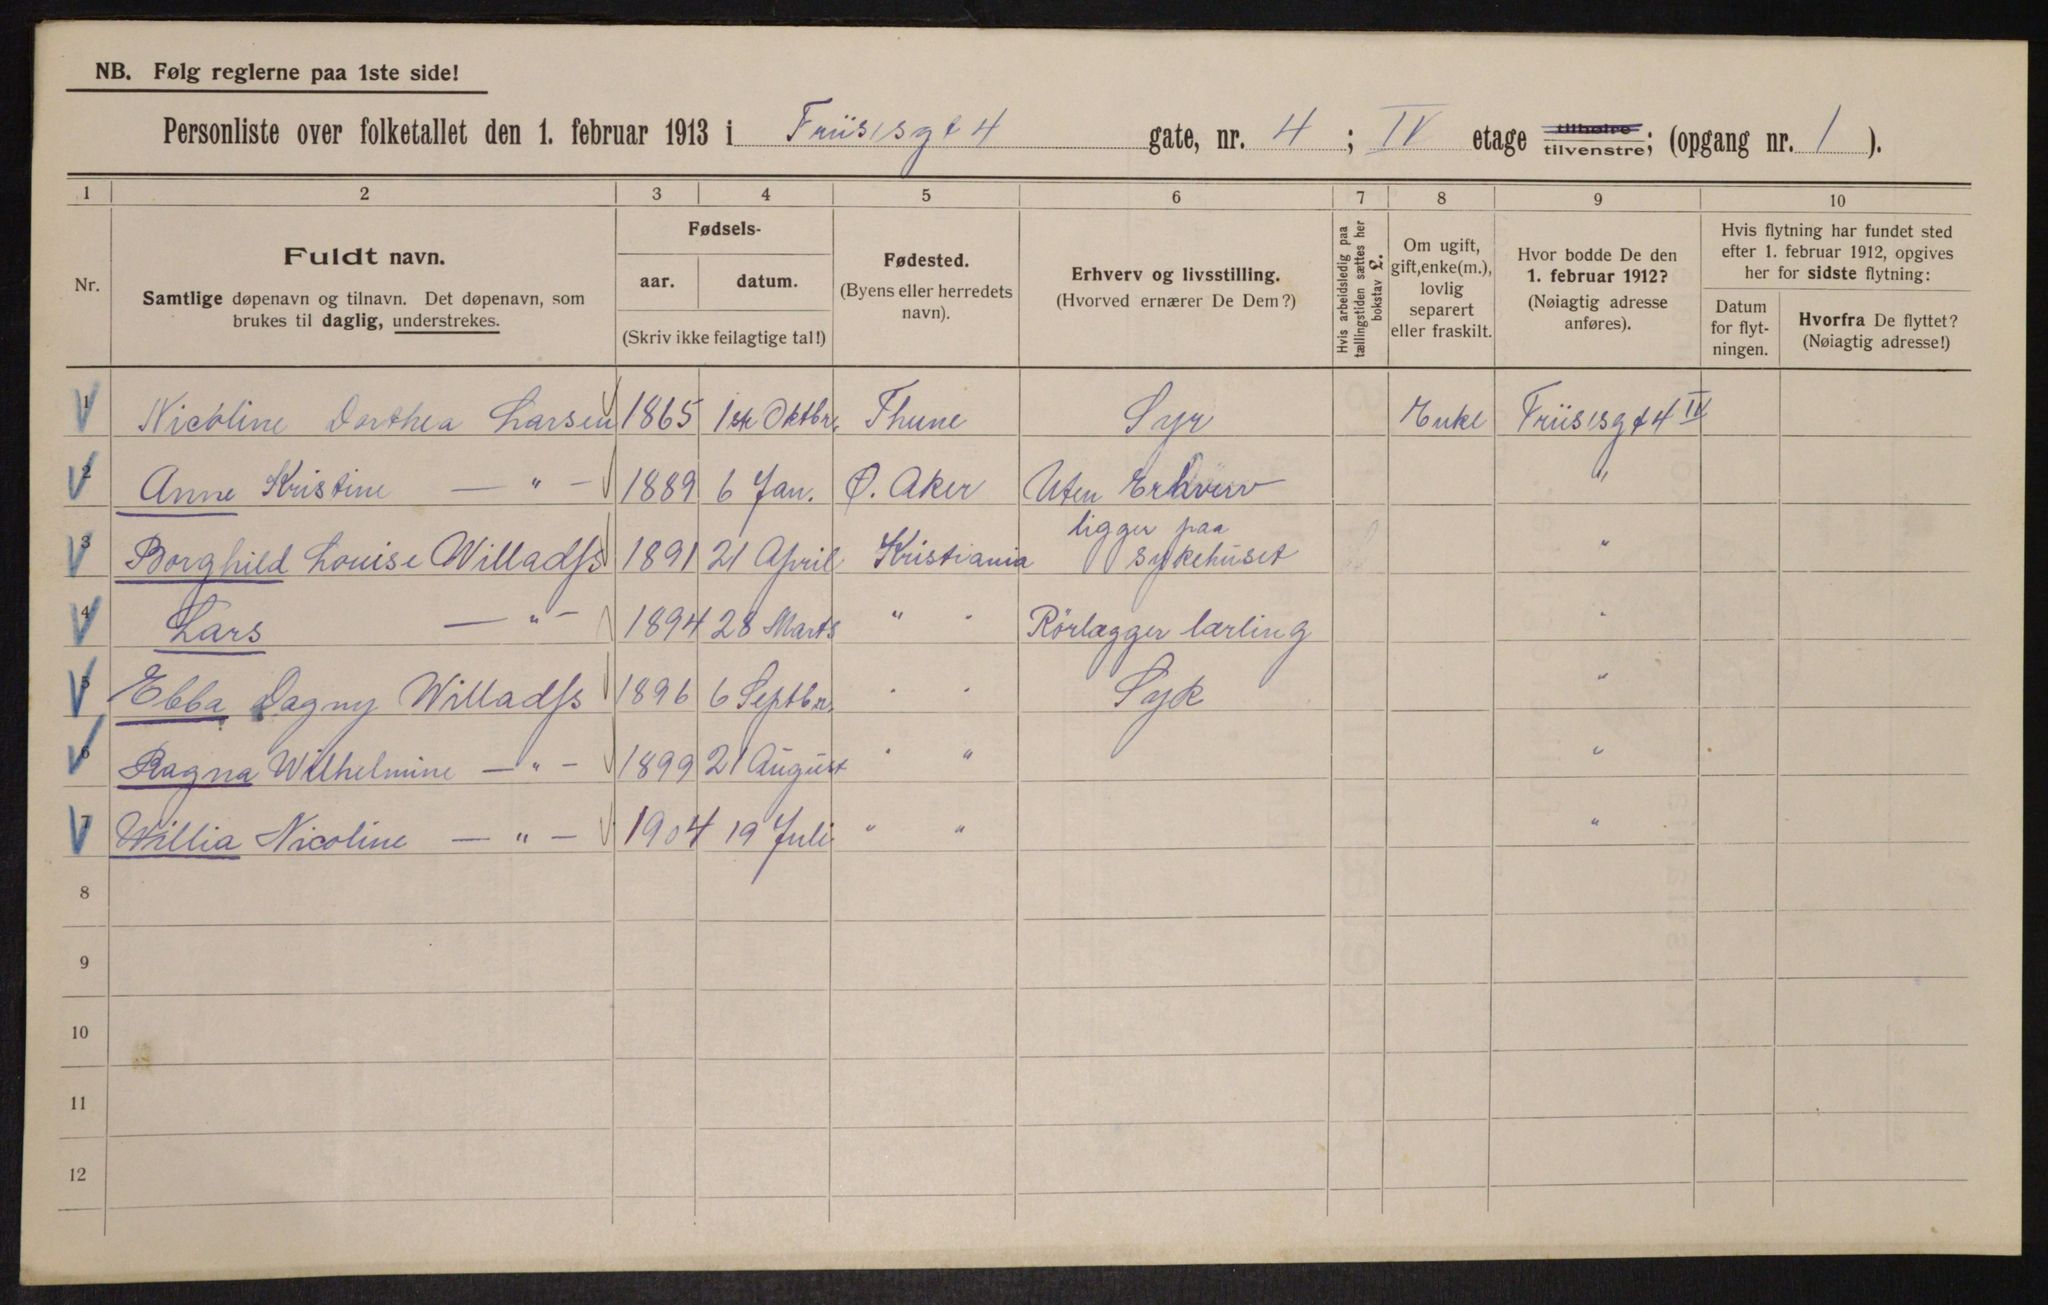 NB. Følg reglerne paa 1ste side!
Personliste over folketallet den 1. februar 1913 i Friisisgt 4 gate, nr. 4; IV etage tilhøire tilvenstre; (opgang nr. 1).
1 2 3 4 5 6 7 8 9 10
Nr.
Fuldt navn.
Samtlige døpenavn og tilnavn. Det døpenavn, som
brukes til daglig, understrekes.
Fødsels-
aar. datum.
(Skriv ikke feilagtige tal!)
Fødested.
(Byens eller herredets
navn).
Erhverv og livsstilling.
(Hvorved ernærer De Dem?)
Hvis arbeidsledig paa
tællingstiden sættes her
bokstav L.
Om ugift,
gift, enke(m.),
lovlig
separert
eller fraskilt.
Hvor bodde De den
1. februar 1912?
(Nøiagtig adresse
anføres).
Hvis flytning har fundet sted
efter 1. februar 1912, opgives
her for sidste flytning:
Datum
for flyt-
ningen.
Hvorfra De flyttet?
(Nøiagtig adresse!)
1 Nicoline Dorthea Larsen 1865 1ste Oktbr. Thune Syr Enke Friisisgt 4 IV
2 Anne Kristine — " — 1889 6 Jan. Ø. Aker Uten Erhverv "
3 Borghild Louise Willadss 1891 21 April Kristiania ligger paa sykehuset "
4 Lars — " — 1894 28 Marts " " Rørlægger lærling "
5 Ebba Dagny Willadss 1896 6 Septbr. " " Syk "
6 Ragna Wilhelmine — " — 1899 21 August " " "
7 Willia Nicoline — " — 1904 19 Juli " " "
8
9
10
11
12